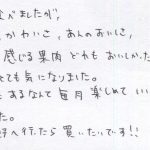 食べましたが、
かわいさ、あんのおいさ、
感じる果肉 どれもおいしかった
ても気になりました。
あるなんて毎月楽しめていい
た。
好へ行ったら買いたいです!!